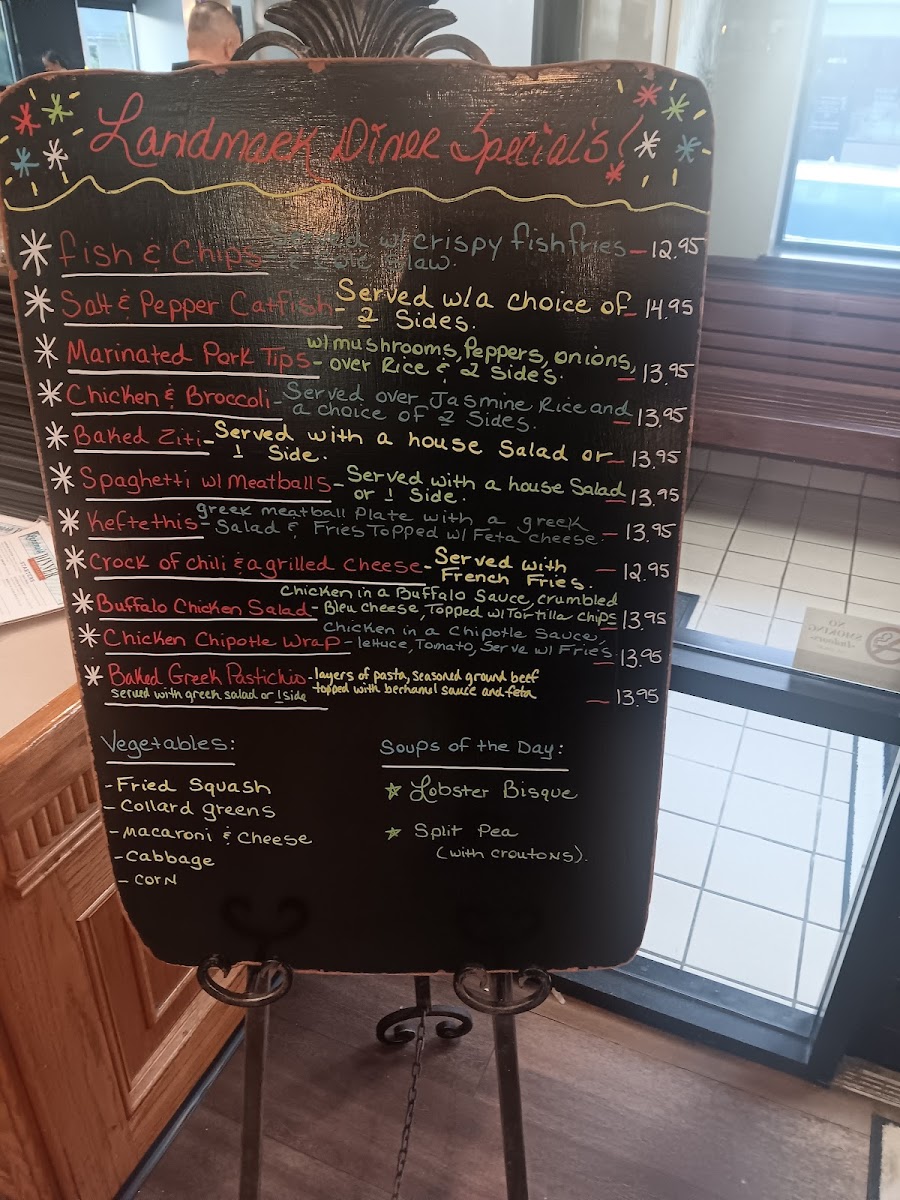 Landmark Diner Specials!
Fish & Chips w/ crispy fish fries - 12.95
Slaw.
Salt & Pepper Catfish - Served w/a choice of - 14.95
2 Sides.
Marinated Pork Tips - w/ mushrooms, Peppers, onions,
over Rice & 2 Side's. - 13.95
Chicken & Broccoli - Served over Jasmine Rice and
a choice of 2 Sides. - 13.95
Baked Ziti - Served with a house Salad or - 13.95
1 Side.
Spaghetti w/ Meatballs - Served with a house Salad
or 1 Side. - 13.95
Keftethis - greek meatball Plate with a greek
Salad & Fries Topped w/ Feta cheese - 13.95
Crock of chili & a grilled cheese - Served with
French Fries. - 12.95
Buffalo Chicken Salad - Chicken in a Buffalo Sauce, crumbled
Bleu cheese, Topped w/ Tortilla chips - 13.95
Chicken Chipotle Wrap - Chicken in a Chipotle Sauce,
lettuce, Tomato, Serve w/ Fries - 13.95
Baked Greek Pastichio - layers of pasta, seasoned ground beef
topped with bechamel sauce and feta
served with greek salad or 1 side - 13.95
Vegetables:
- Fried Squash
- Collard greens
- Macaroni & Cheese
- Cabbage
- Corn
Soups of the Day:
Lobster Bisque
Split Pea
(with croutons).
NO
SMOKING